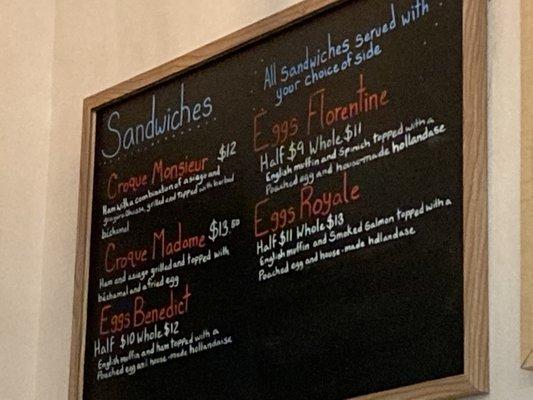 Sandwiches
Croque Monsieur $12
Ham with a combination of asiago and
grilled and topped with herbed
béchamel
Croque Madame $13.50
Ham and asiago grilled and topped with
béchamel and a fried egg
Eggs Benedict
Half $10 Whole $12
English muffin and ham topped with a
Poached egg and house-made hollandaise
All sandwiches served with
your choice of side
Eggs Florentine
Half $9 Whole $11
English muffin and Spinich topped with a
Poached egg and house-made hollandaise
Eggs Royale
Half $11 Whole $13
English muffin and Smoked Salmon topped with a
Poached egg and house-made hollandaise